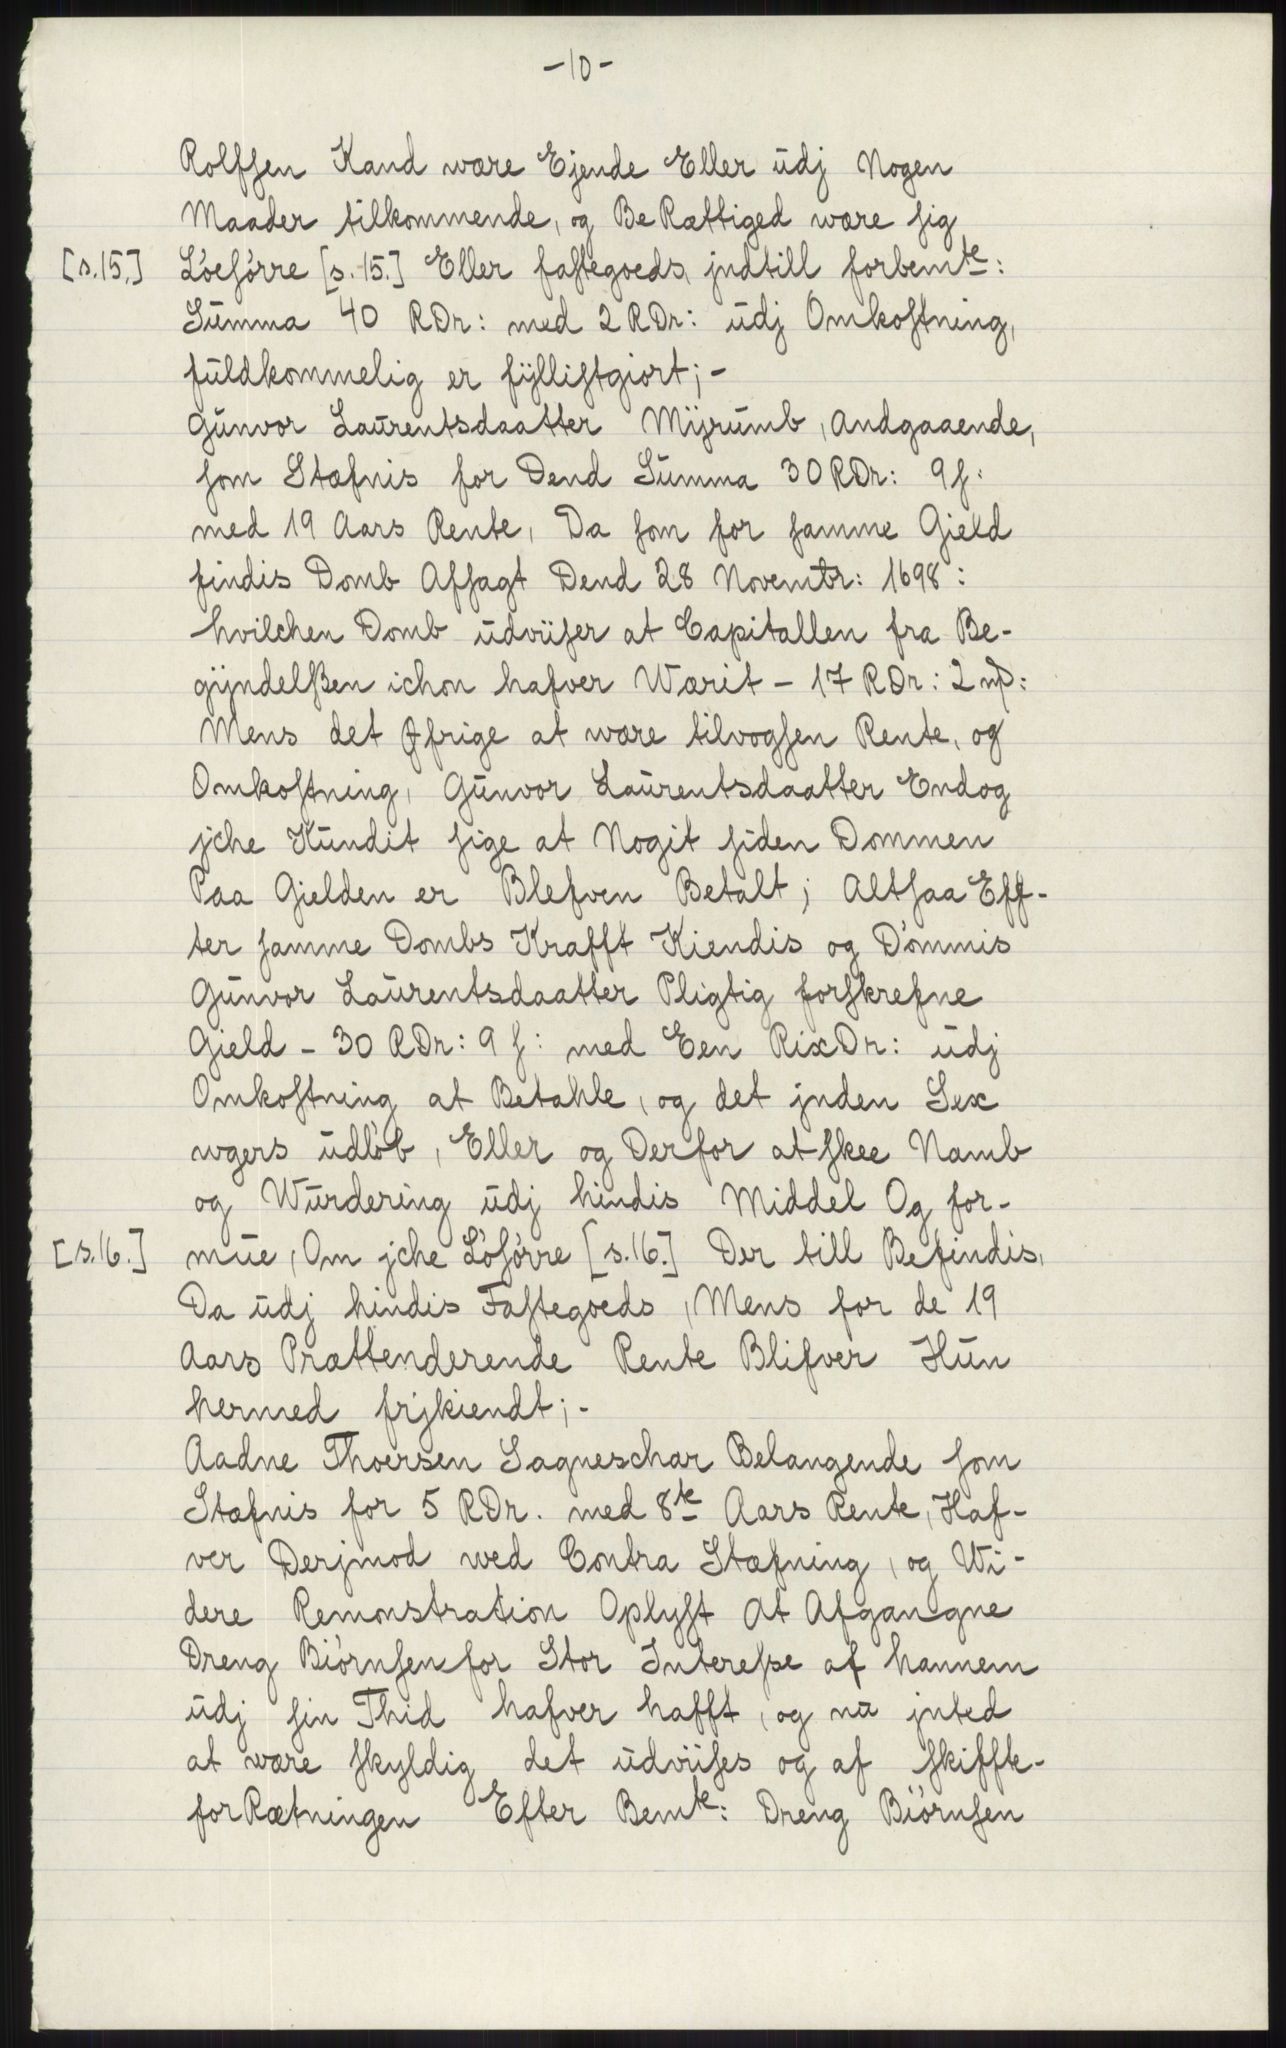 -10-
Rolfsen Kand være Ejende Eller udj Nogen
Maader tilkommende, og Be Rættiged være sig
[s.15.] Löesörre [s.15.] Eller fastegoeds, jndtill forbemte:
Summa 40 RDr: med 2 RDr: udj Omkostning,
fuldkommelig er fÿllistgiort; -
Gunvor Laurentsdaatter Mijrumb, Andgaaende,
som Stæfnis for Dend Summa 30 RDr: 9 s:
med 19 Aars Rente, Da som for samme Gield
findis Domb Afsagt Dend 28 Novembr: 1698:
hvilchen Domb udviiser at Capitallen fra Be-
gÿndelßen ichon hafver Wærit - 17 RDr: 2 mƒ:
Mens det Øfrige at være tilvogsen Rente, og
Omkostning, Gunvor Laurentsdaatter Endog
jche Kundit sige at Nogit siden Dommen
Paa Gielden er Blefven Betalt; Altsaa Eff-
ter samme Dombs Krafft Kiendis og Dömmis
Gunvor Laurentsdaatter Pligtig forskrefne
Gield - 30 RDr: 9 s: med Een RixDr: udj
Omkostning at Betahle, og det jnden Sex
wgers udlöb, Eller og Derfor at skee Namb
og Wurdering udj hindis Middel Og for-
[s.16.] mue, Om jche Lösörre [s.16.] Der till Befindis,
Da udj hindis Fastegoeds, Mens for de 19
Aars Prættenderende Rente Blifver Hun
hermed frjkiendt; -
Aadne Thoersen Sagneschar Belangende som
Stæfnis for 5 RDr. med 8te Aars Rente, Haf-
ver Derjmod ved Contra Stæfning, og Wi-
dere Remonstration Oplyst At Afgangne
Dreng Biörnsen for Stor Interesse af hannem
udj sin Thid hafver hafft, og nu jnted
at være skyldig det udviises og af skiffte-
for Rætningen Efter Bemte: Dreng Biörnsen